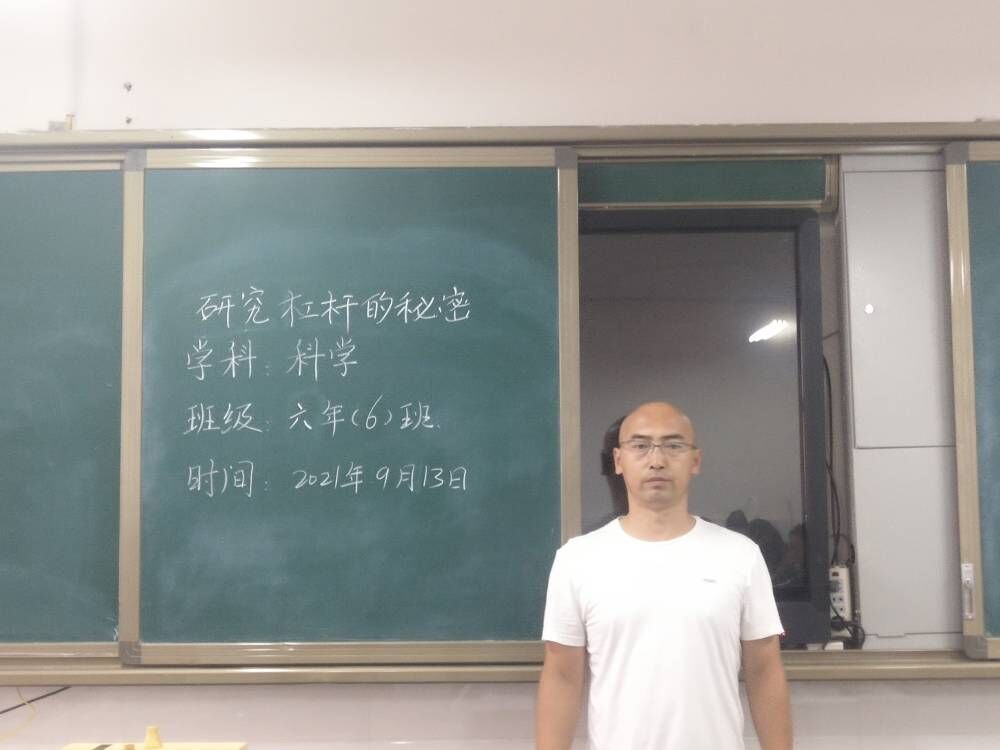 研究杠杆的秘密
学科：科学
班级：六年(6)班.
时间：2021年9月13日